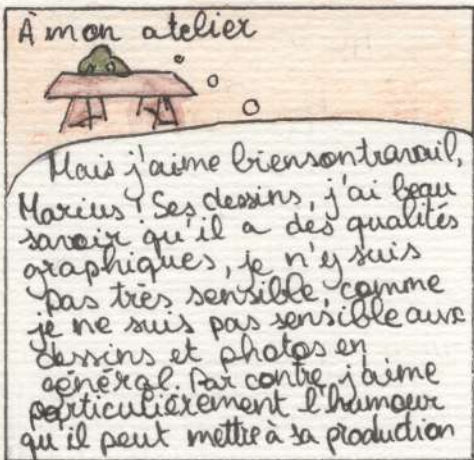 À mon atelier
Mais j'aime bien son travail,
Marius ! Ses dessins, j'ai beau
savoir qu'il a des qualités
graphiques, je n'y suis
pas très sensible, comme
je ne suis pas sensible aux
dessins et photos en
général. Par contre j'aime
particulièrement l'humour
qu'il peut mettre à sa production